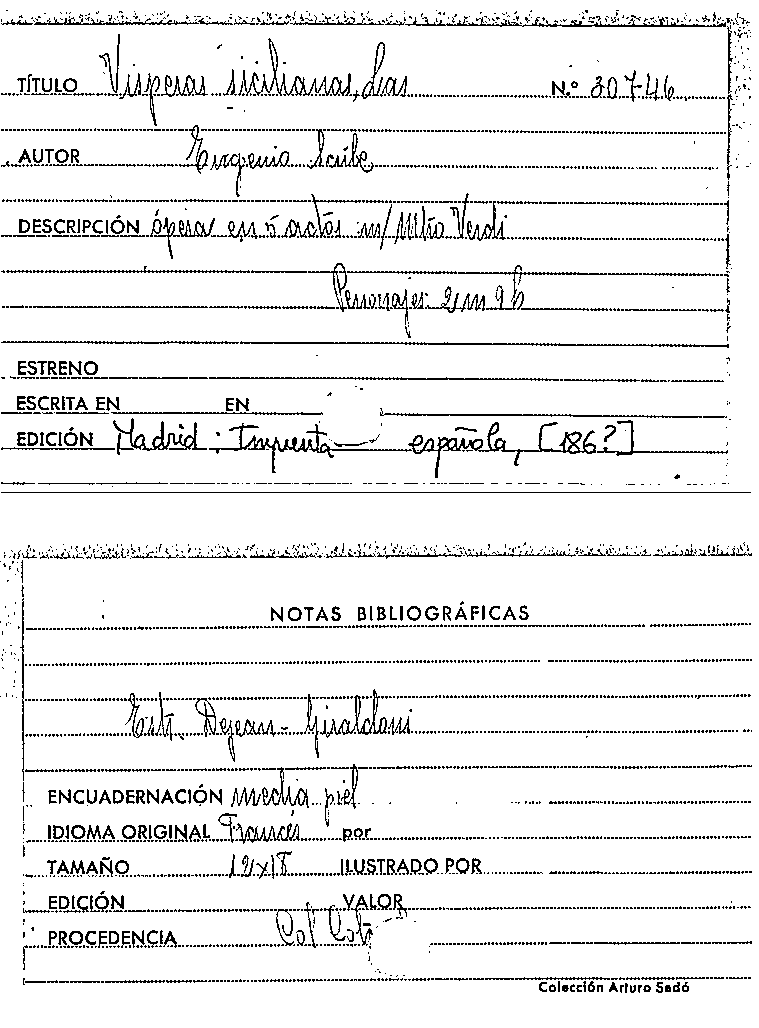 TÍTULO Vísperas sicilianas, Las N.º 30746
AUTOR Eugenio Scribe
DESCRIPCIÓN ópera en 5 actos m/ Mtro Verdi
Personajes: 2 m 9 h
ESTRENO
ESCRITA EN EN
EDICIÓN Madrid : Imprenta española, [186?]
NOTAS BIBLIOGRÁFICAS
Estr. Dejean - Giraldoni
ENCUADERNACIÓN media piel
IDIOMA ORIGINAL Francés por
TAMAÑO 12x18 ILUSTRADO POR
EDICIÓN VALOR
PROCEDENCIA Col
Colección Arturo Sedó